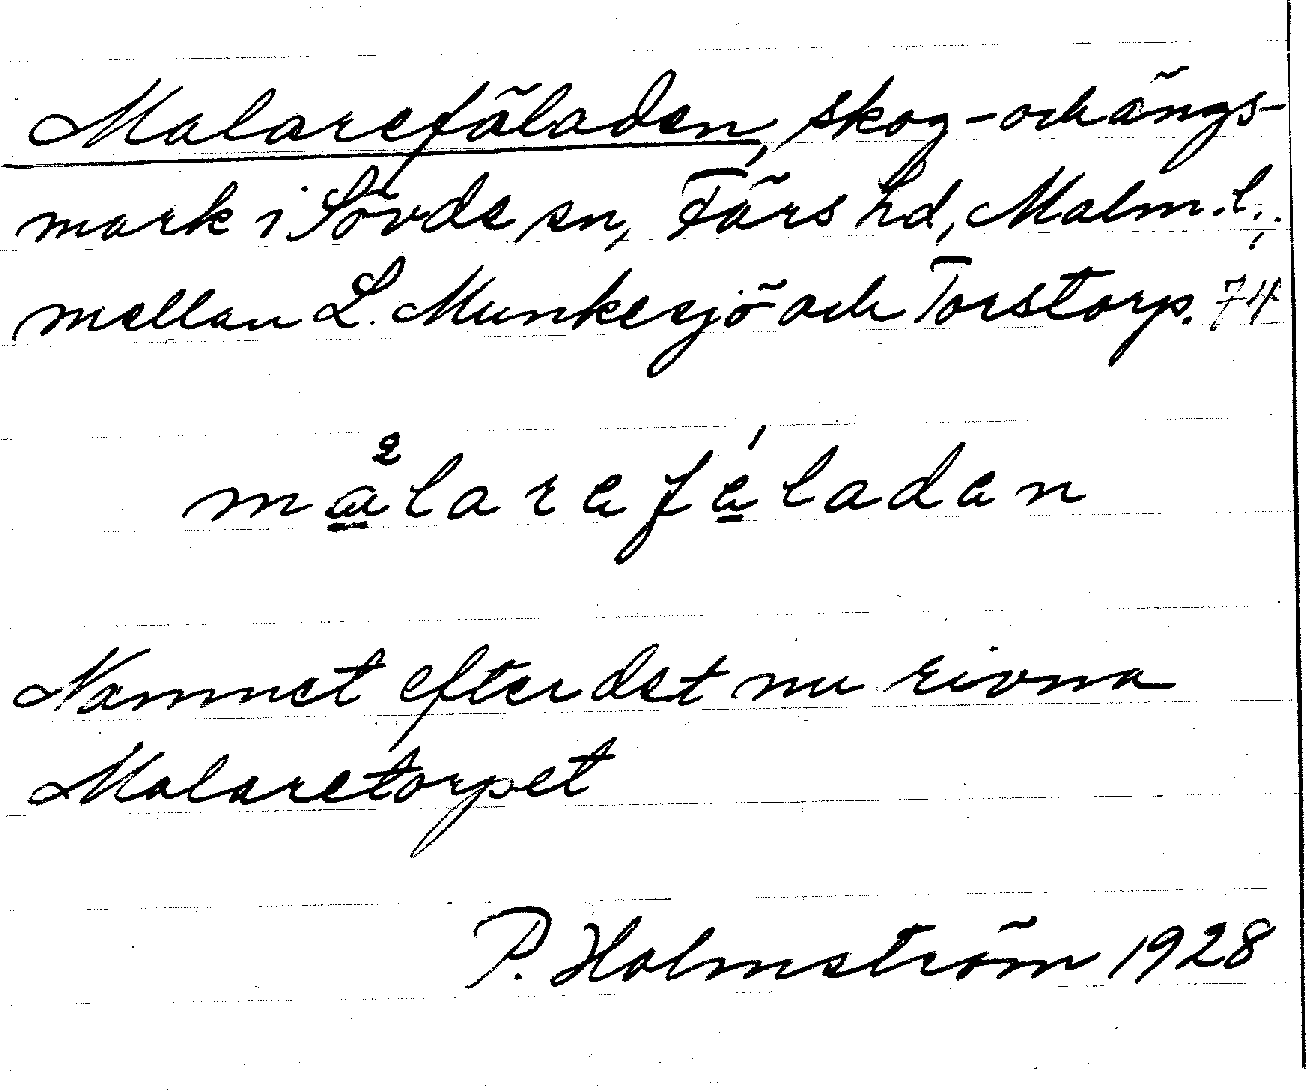 Malarefäladen, skog- och ängs-
mark i Sövde sn, Färs hd, Malm. l.,
mellan L. Munkesjö och Torstorp. 74
malarefäladen
Namnet efter det nu rivna
Malaretorpet
P. Holmström 1928